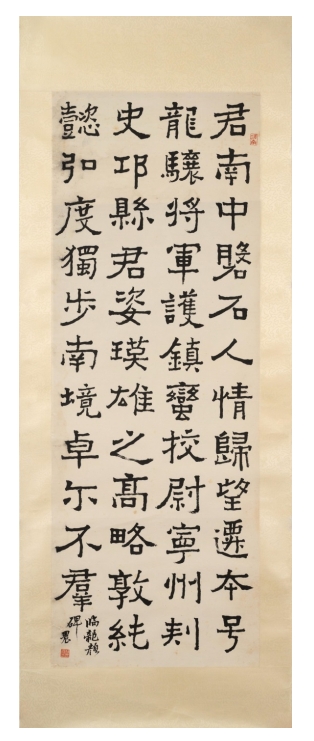 君南中磐石人情歸望遷本号
龍驤將軍護鎮蠻校尉寧州刾
史邛縣君姿瑛雄之高略敦純
懿弘度獨步南境卓尔不羣
临龍顏
碑